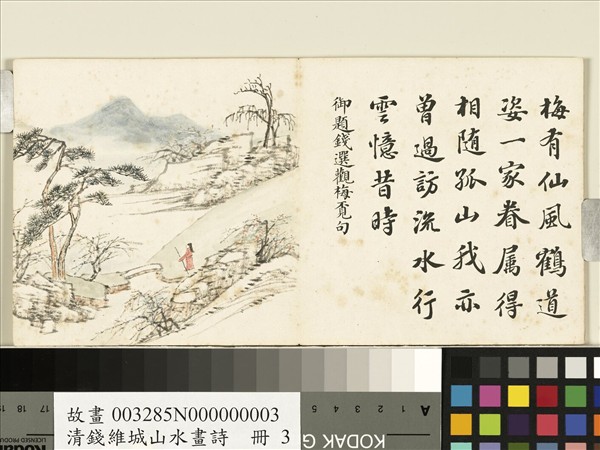 梅有仙風鶴道
姿一家眷属得
相随孤山我亦
曽過訪流水行
雲憶昔時
御題錢選觀梅覓句
故畫 003285N000000003
清錢維城山水畫詩 冊 3
KODAK G
A
LICENSED PRODU
17 18 19
5 4 3